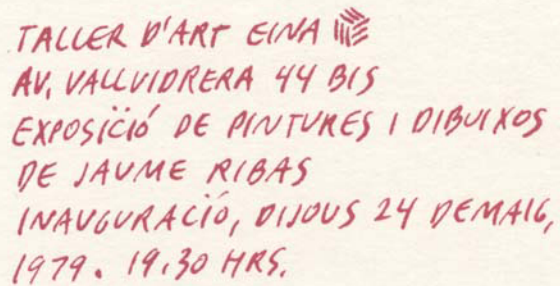 TALLER D'ART EINA
AV. VALLVIDRERA 44 BIS
EXPOSICIÓ DE PINTURES I DIBUIXOS
DE JAUME RIBAS
INAUGURACIÓ, DIJOUS 24 DE MAIG,
1979. 19.30 HRS.